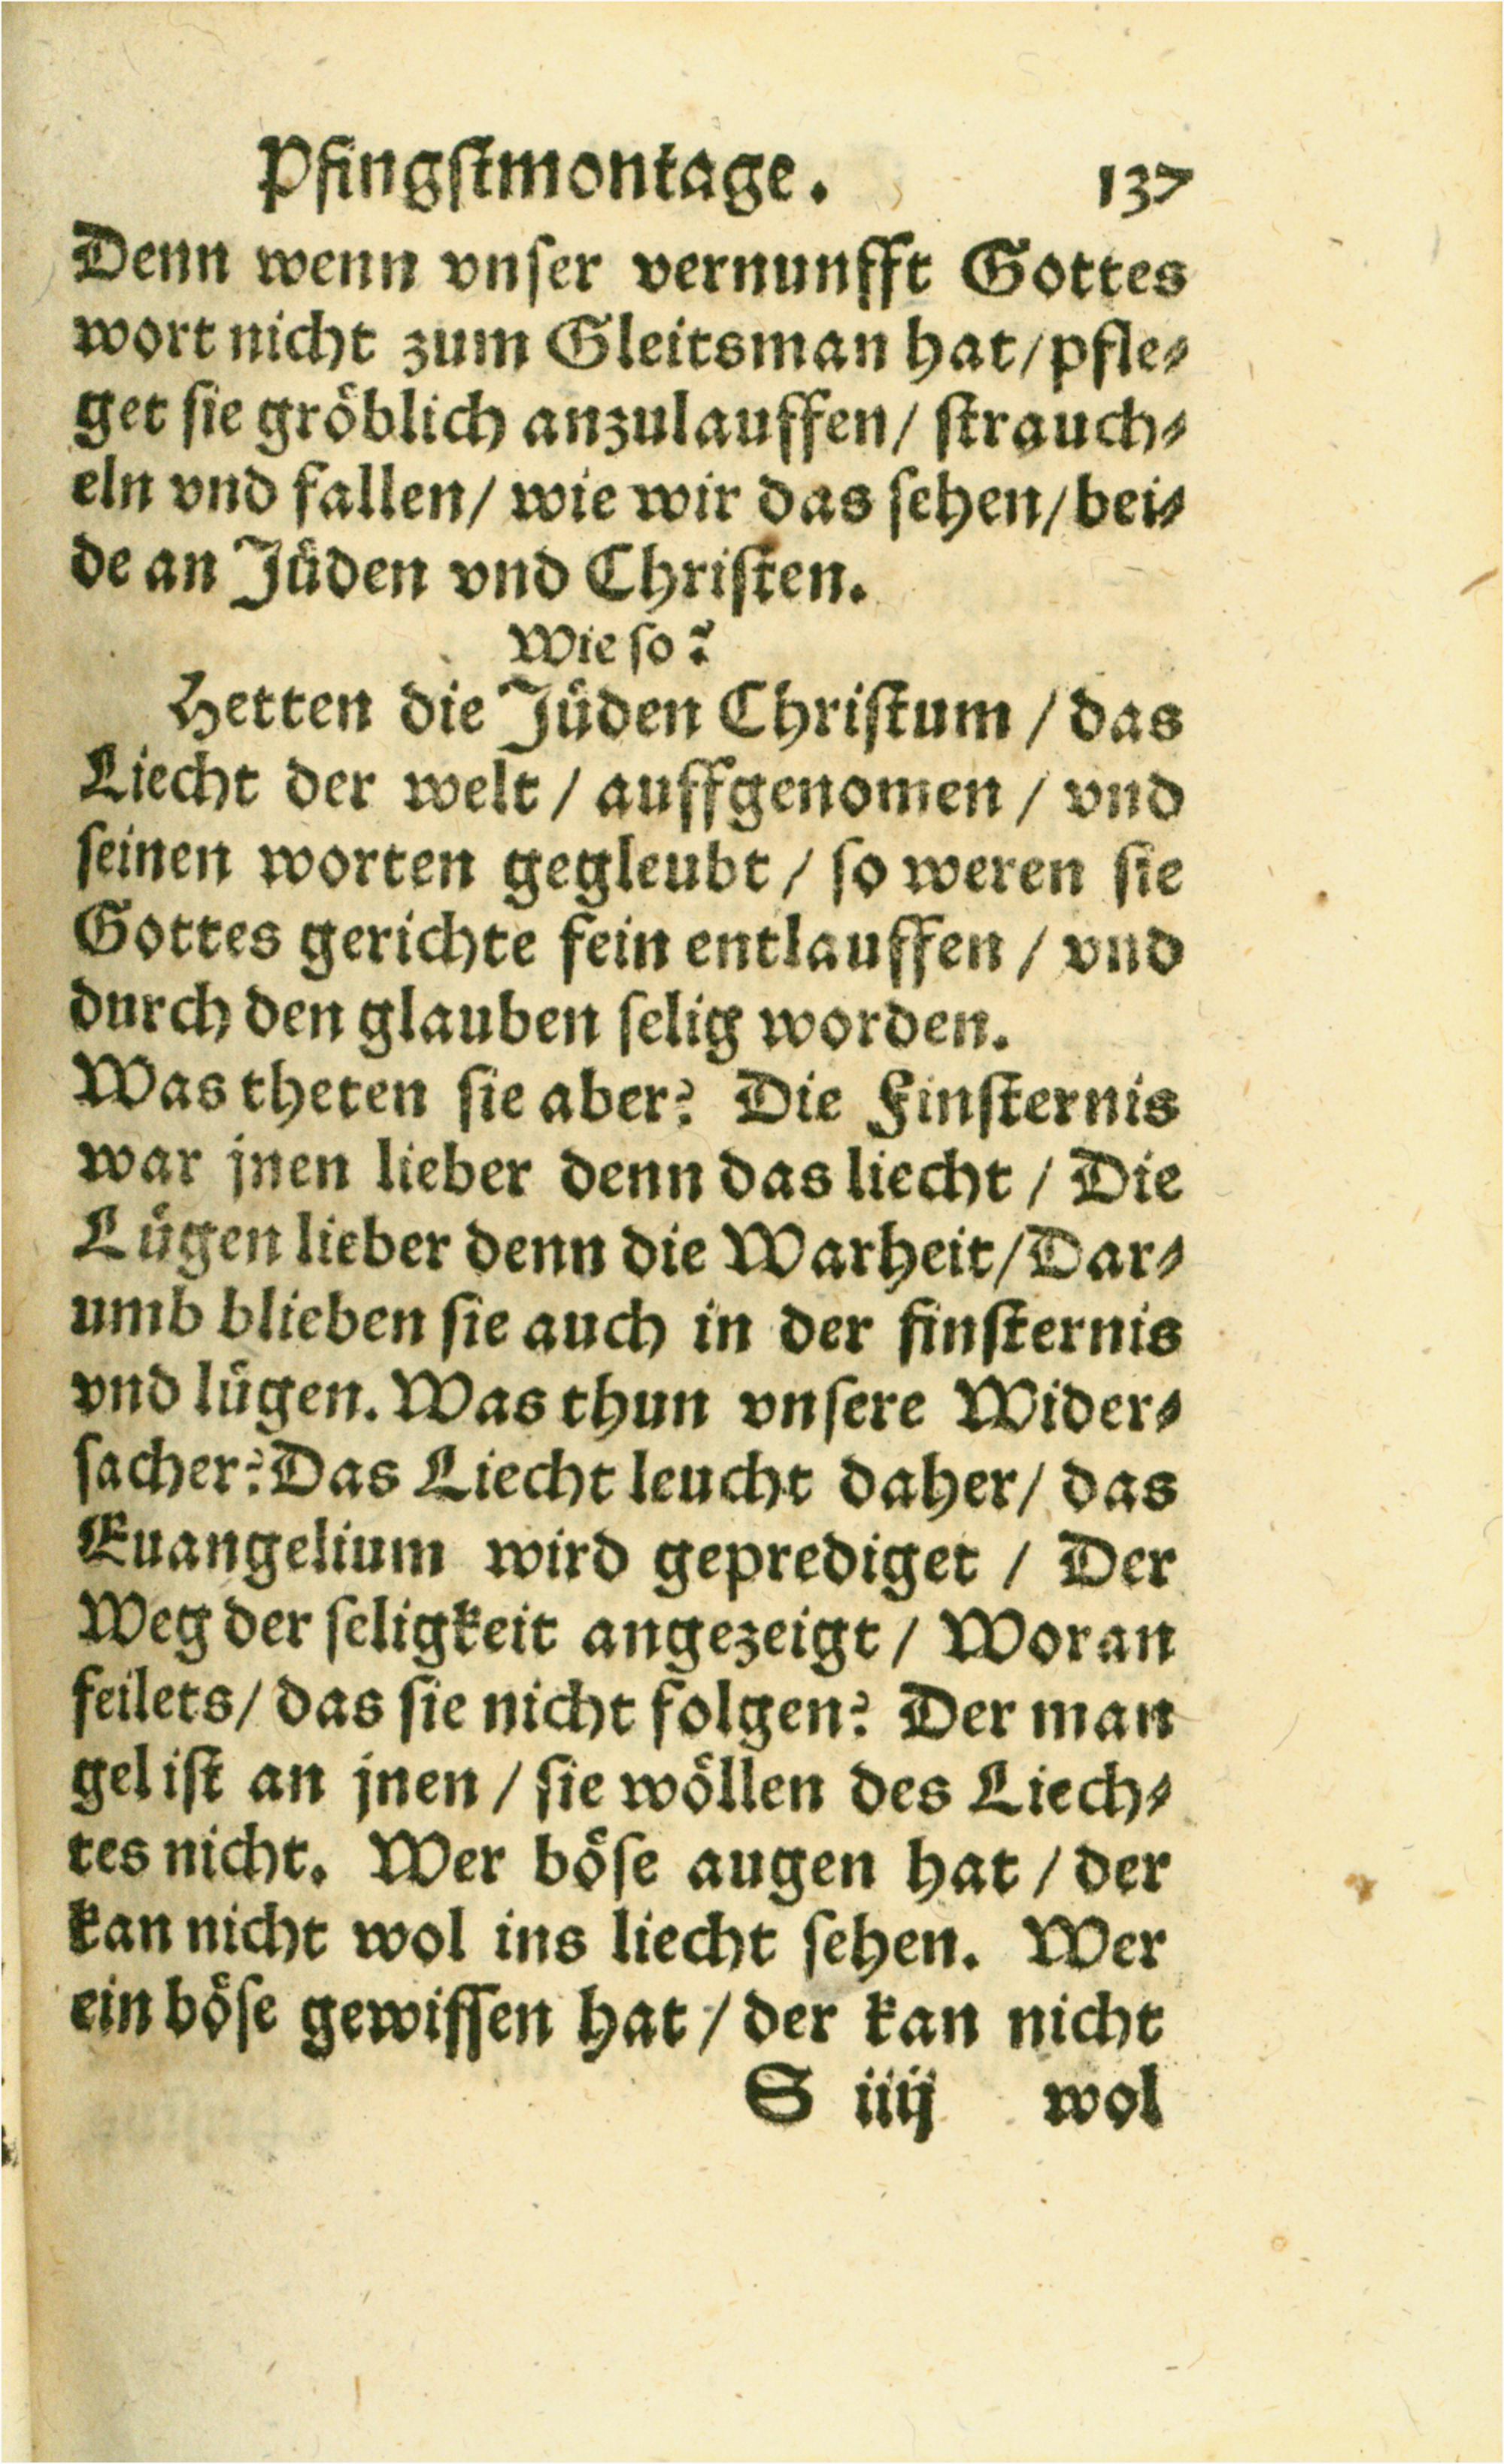 Pfingſtmontage. 137
Denn wenn vnſer vernunfft Gottes
wort nicht zum Gleitsman hat/ pfle⸗
get ſie gröblich anzulauffen/ ſtrauch⸗
eln vnd fallen/ wie wir das ſehen/ bei⸗
de an Jüden vnd Chriſten.
Wie ſo?
Hetten die Jüden Chriſtum / das
Liecht der welt / auffgenomen / vnd
ſeinen worten gegleubt / ſo weren ſie
Gottes gerichte fein entlauffen / vnd
durch den glauben ſelig worden.
Was theten ſie aber? Die Finſternis
war jnen lieber denn das liecht / Die
Lügen lieber denn die Warheit/ Dar⸗
umb blieben ſie auch in der finſternis
vnd lügen. Was thun vnſere Wider⸗
ſacher? Das Liecht leucht daher/ das
Euangelium wird geprediget / Der
Weg der ſeligkeit angezeigt / Woran
feilets/ das ſie nicht folgen? Der man
gel iſt an jnen / ſie wöllen des Liech⸗
tes nicht. Wer böſe augen hat / der
kan nicht wol ins liecht ſehen. Wer
ein böſe gewiſſen hat / der kan nicht
S iiij wol